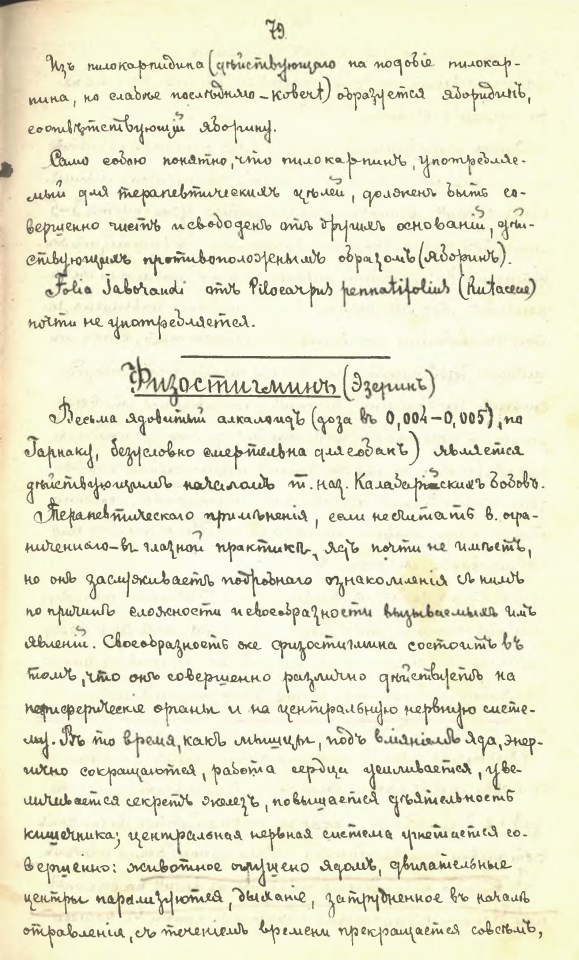 79.
Изъ пилокарпидина (дѣйствующаго на подобіе пилокар-
пина, но слабѣе послѣдняго – Kobert) образуется яборидинъ,
соотвѣтствующій яборину.
Само собою понятно, что пилокарпинъ, употребляе-
мый для терапевтическихъ цѣлей, долженъ быть со-
вершенно чистъ и свободенъ отъ другихъ основаній, дѣй-
ствующихъ противоположнымъ образомъ (яборинъ).
Folia Jaborandi отъ Pilocarpus pennatifolius (Rutaceae)
почти не употребляется.
Физостигминъ (Эзеринъ)
Весьма ядовитый алкалоидъ (доза въ 0,004–0,005), по
Гарнаку, безусловно смертельна для собакъ) является
дѣйствующимъ началомъ т. наз. Калабарійскихъ бобовъ.
Терапевтическаго примѣненія, если несчитать в. огра-
ниченнаго–въ глазной практикѣ, ядъ почти не имѣетъ,
но онъ заслуживаетъ подробнаго ознакомленія съ нимъ
по причинѣ сложности и своеобразности вызываемыхъ имъ
явленій. Своеобразность же физостигмина состоитъ въ
томъ, что онъ совершенно различно дѣйствуетъ на
периферическіе органы и на центральную нервную систе-
му. Въ то время, какъ мышцы, подъ вліяніемъ яда, энер-
гично сокращаются, работа сердца усиливается, уве-
личивается секретъ железъ, повышается дѣятельность
кишечника; центральная нервная система угнетается со-
вершенно: животное оглушено ядомъ, двигательные
центры парализуются, дыханіе, затрудненное въ началѣ
отравленія, съ теченіемъ времени прекращается совсѣмъ,